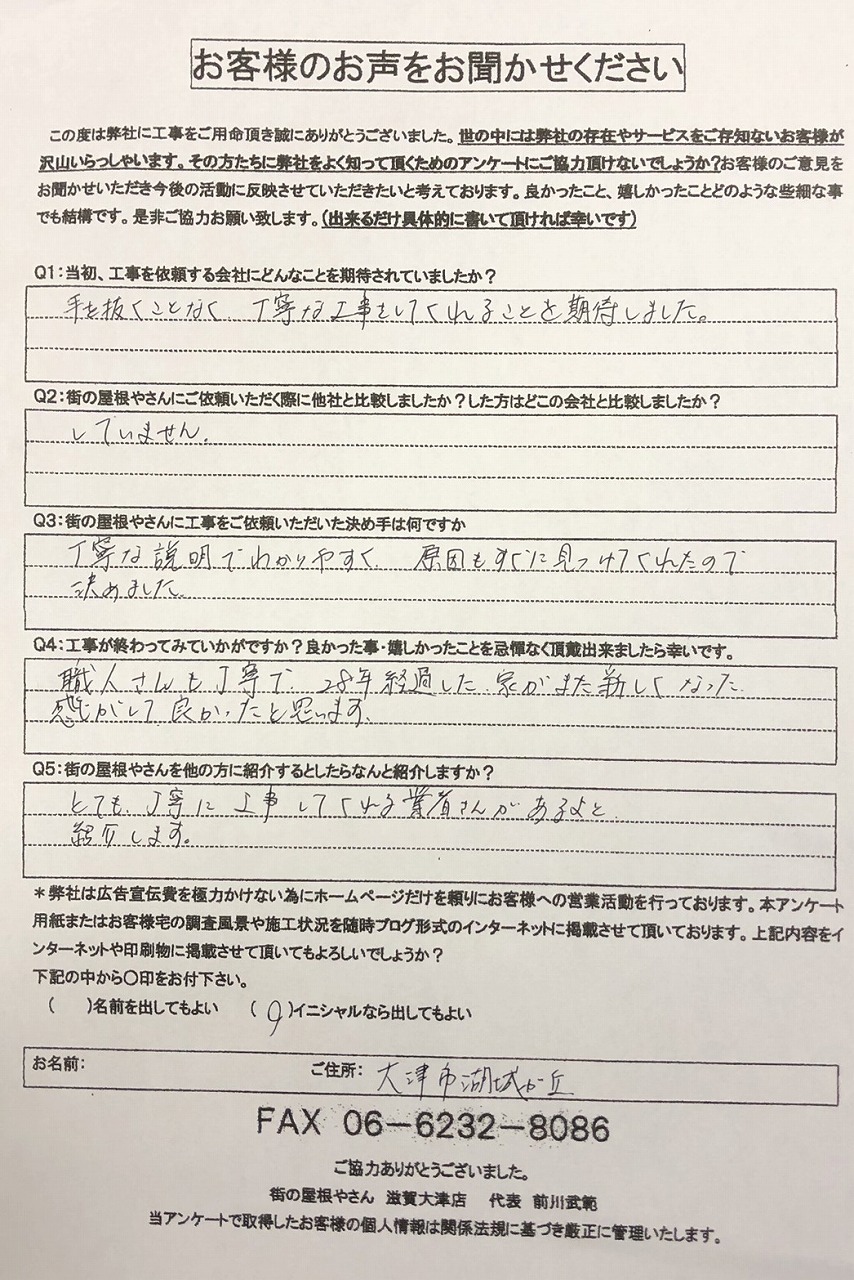 お客様のお声をお聞かせください
この度は弊社に工事をご用命頂き誠にありがとうございました。世の中には弊社の存在やサービスをご存知ないお客様が
沢山いらっしゃいます。その方たちに弊社をよく知って頂くためのアンケートにご協力頂けないでしょうか?お客様のご意見を
お聞かせいただき今後の活動に反映させていただきたいと考えております。良かったこと、嬉しかったことどのような些細な事
でも結構です。是非ご協力お願い致します。(出来るだけ具体的に書いて頂ければ幸いです)
Q1:当初、工事を依頼する会社にどんなことを期待されていましたか?
手を抜くことなく、丁寧な工事をしてくれることを期待しました。
Q2:街の屋根やさんにご依頼いただく際に他社と比較しましたか?した方はどこの会社と比較しましたか?
していません。
Q3:街の屋根やさんに工事をご依頼いただいた決め手は何ですか
丁寧な説明でわかりやすく、原因もすぐに見つけてくれたので
決めました。
Q4:工事が終わってみていかがですか?良かった事・嬉しかったことを忌憚なく頂戴出来ましたら幸いです。
職人さんも丁寧で、28年経過した家がまた新しくなった
感じがして良かったと思います。
Q5:街の屋根やさんを他の方に紹介するとしたらなんと紹介しますか?
とても、丁寧に工事してくれる業者さんがあるよと
紹介します。
*弊社は広告宣伝費を極力かけない為にホームページだけを頼りにお客様への営業活動を行っております。本アンケート
用紙またはお客様宅の調査風景や施工状況を随時ブログ形式のインターネットに掲載させて頂いております。上記内容をイ
ンターネットや印刷物に掲載させて頂いてもよろしいでしょうか?
下記の中から〇印をお付下さい。
( )名前を出してもよい (〇)イニシャルなら出してもよい
お名前: ご住所: 大津市湖城が丘
FAX 06-6232-8086
ご協力ありがとうございました。
街の屋根やさん 滋賀大津店 代表 前川武範
当アンケートで取得したお客様の個人情報は関係法規に基づき厳正に管理いたします。